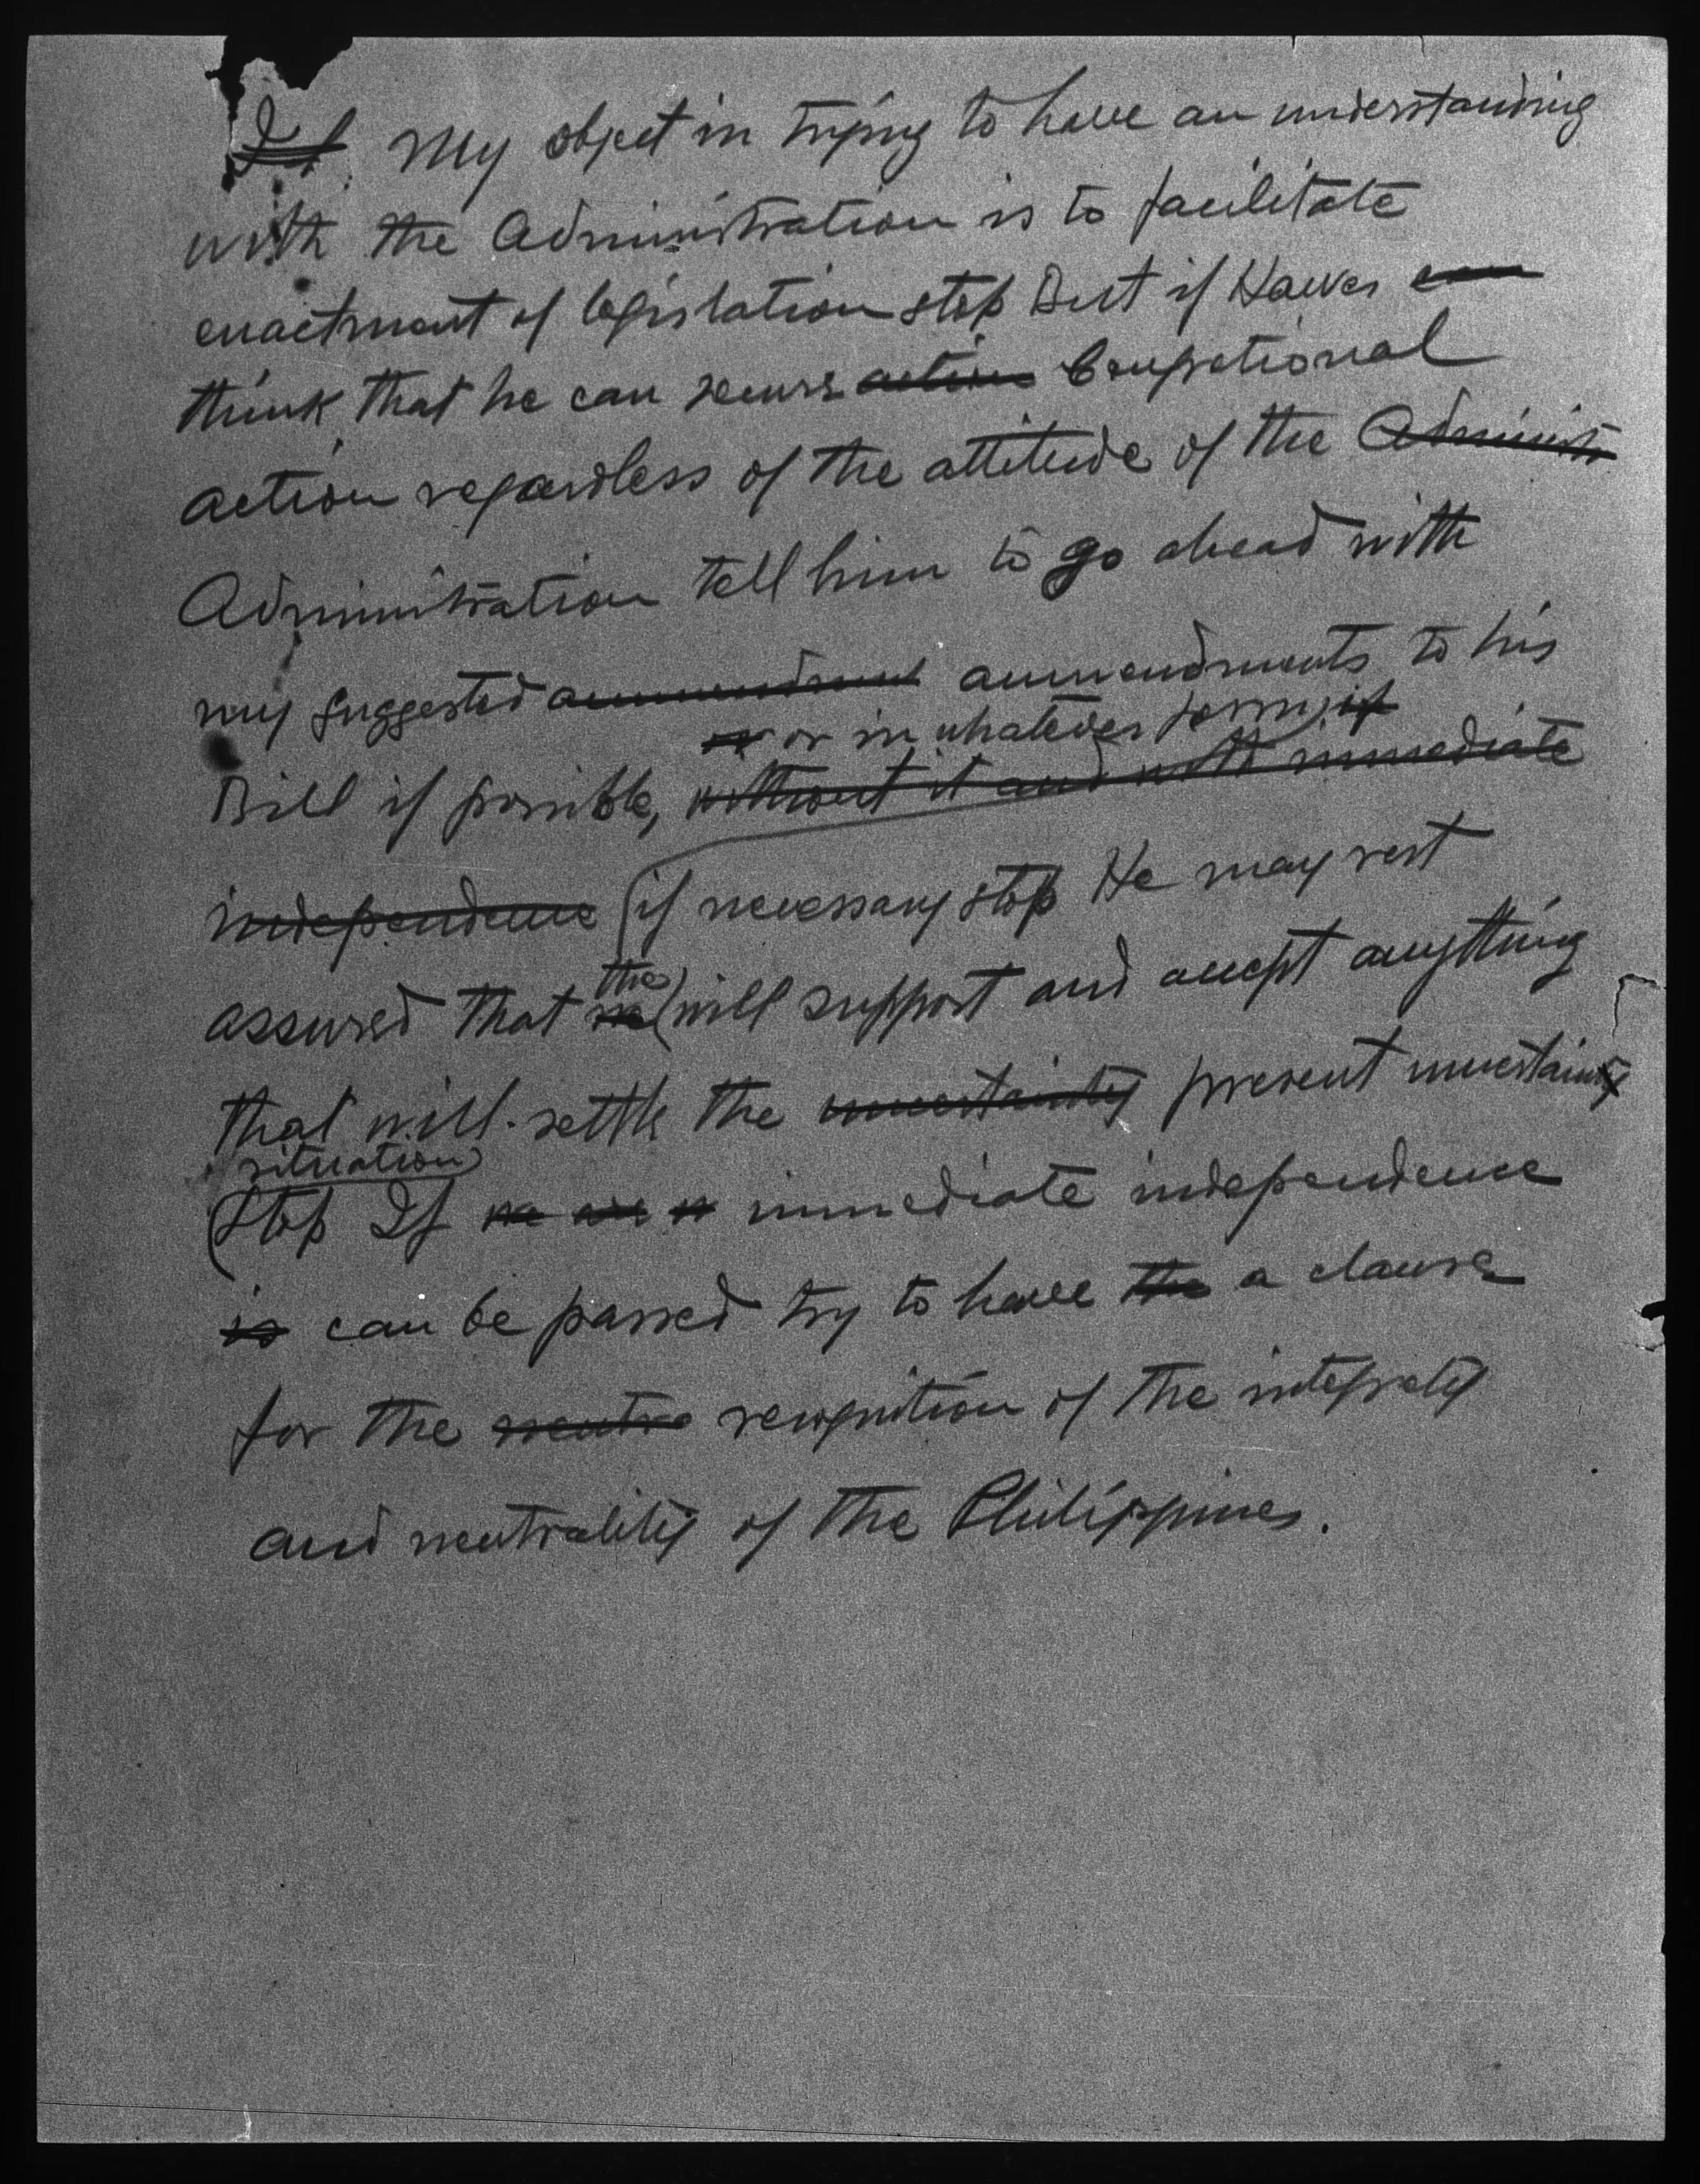 If My object in trying to have an understanding
with the Administration is to facilitate
enactment of legislation stop But if Hawes can
think that he can secure action Congretional
action regardless of the attitude of the Administr
Administration tell him to go ahead with
my suggested ammendment ammendments to his
or or in whatever form, if
Bill if possible, without it and with immediate
independence if necessary stop He may rest
assured that we will support and accept anything
the
that will settle the uncertainty present uncertainty
situation
Stop If we are immediate independence
is can be passed try to have the a clause
for the neutra recognition of the integrety
and neutrality of the Philippines.